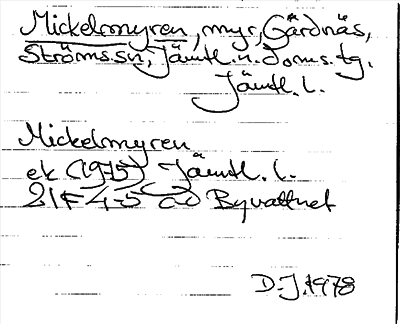 Mickelmyren, myr, Gärdnäs,
Ströms sn, Jämtl. n. doms. tg.
Jämtl. l.
Mickelmyren
ek (1975) Jämtl. l.
21F 4-5 cd Byvattnet
D.J. 1978